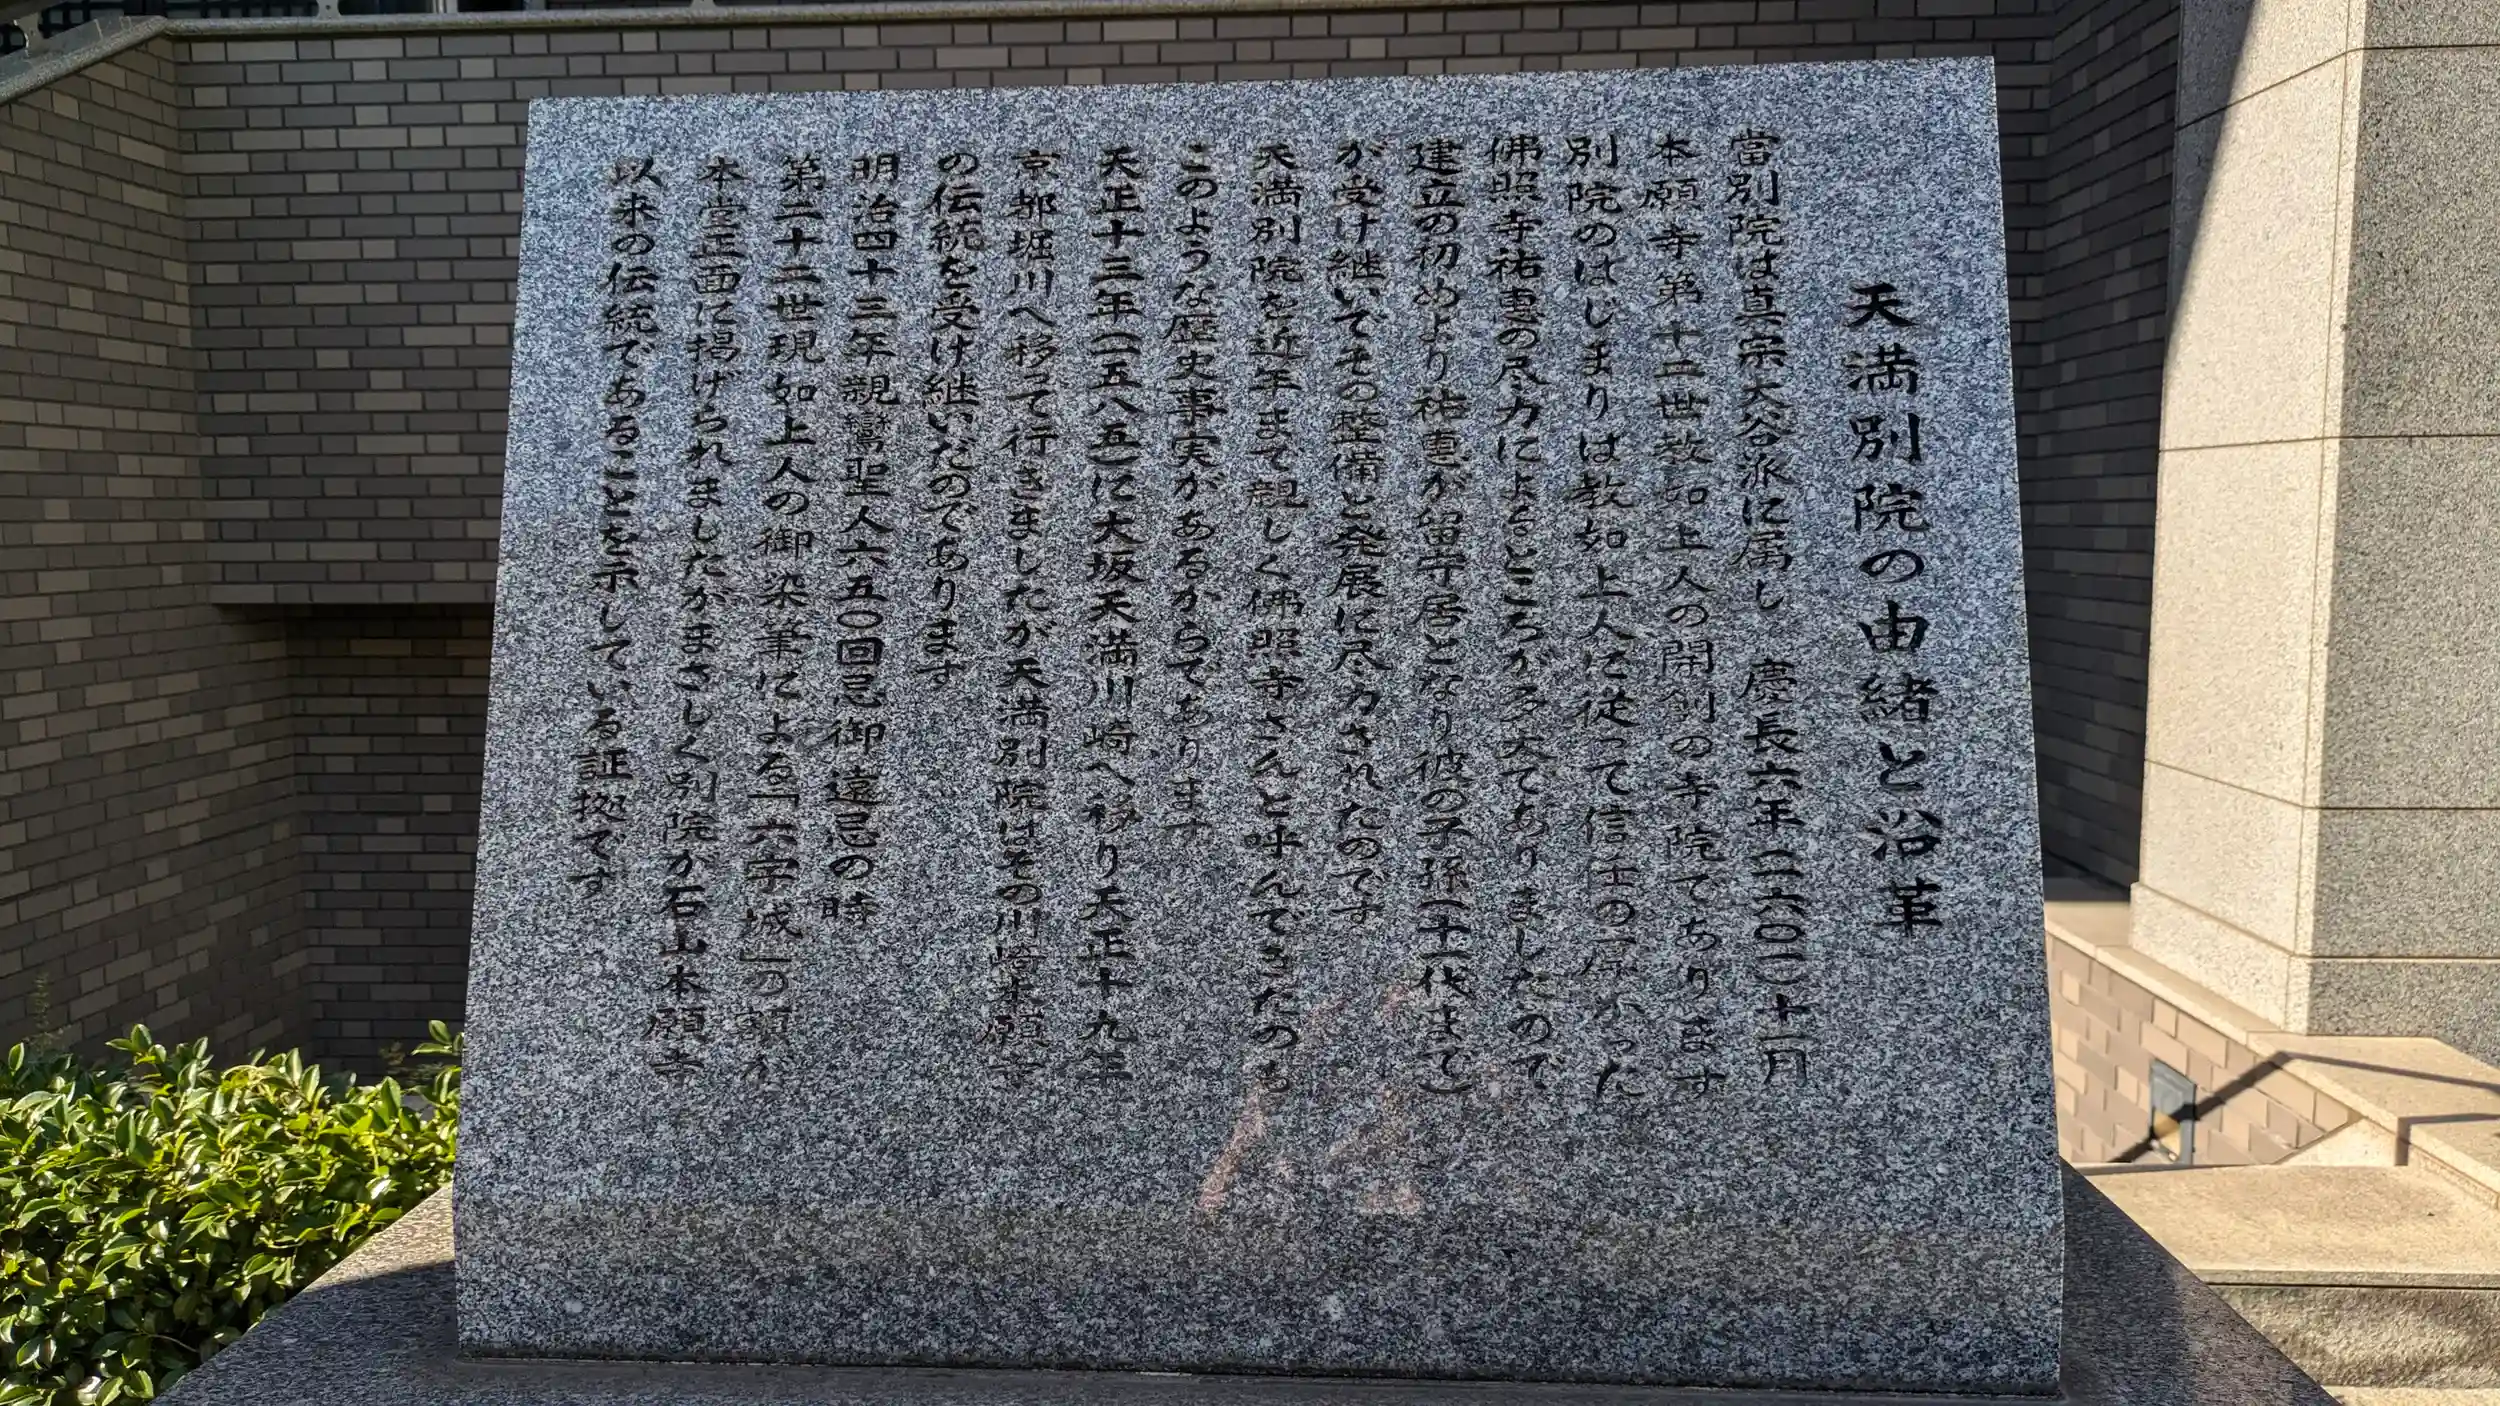 天満別院の由緒と沿革
當別院は真宗大谷派に属し 慶長六年(一六〇一)十一月
本願寺第十二世教如上人の開創の寺院であります
別院のはじまりは教如上人に従って信任の厚かった
佛照寺祐恵の尽力によるところが多大でありましたので
建立の初めより祐恵が留守居となり彼の子孫(十一代まで)
が受け継いでその整備と発展に尽力されたのです
天満別院を近年まで親しく佛照寺さんと呼んできたのも
このような歴史事実があるからであります
天正十三年(一五八五)に大坂天満川崎へ移り天正十九年
京都堀川へ移って行きましたが天満別院はその川崎本願寺
の伝統を受け継いだのであります
明治四十三年親鸞聖人六五〇回忌御遠忌の時
第二十二世現如上人の御染筆による「六字城」の額が
本堂正面に掲げられましたがまさしく別院が石山本願寺
以来の伝統であることを示している証拠です